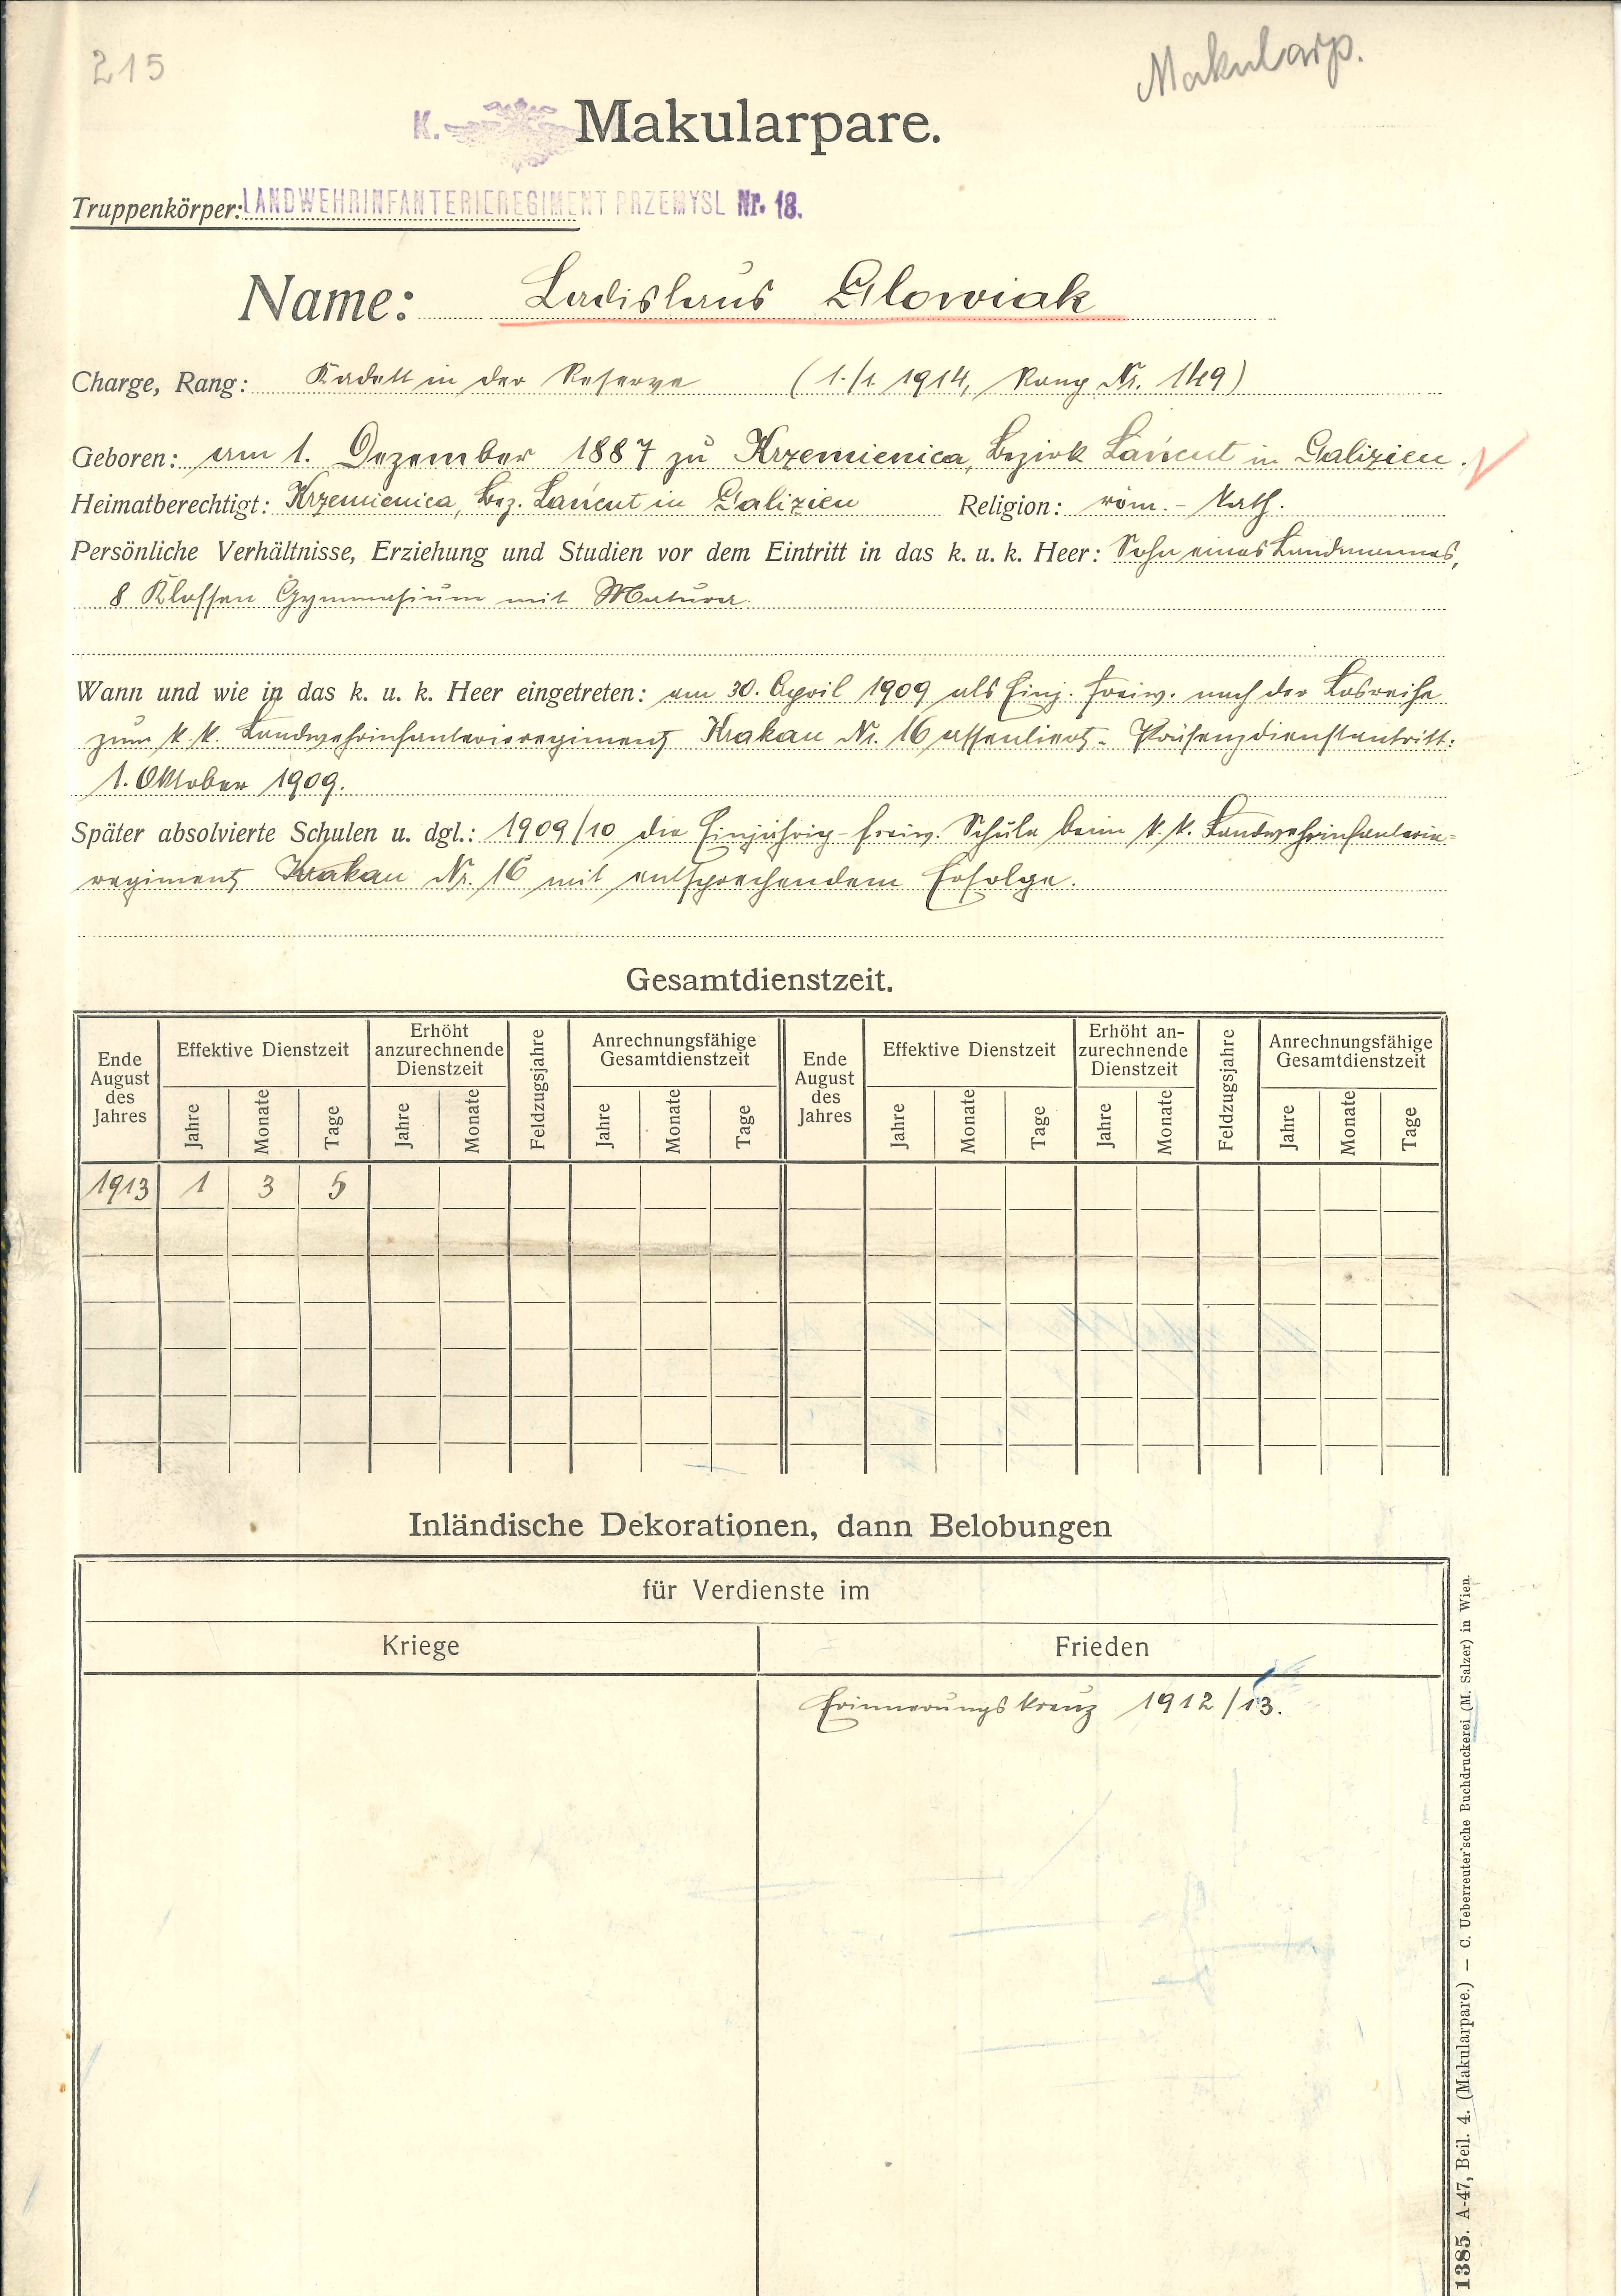 215
Makularp.
K.
Makularpare.
Truppenkörper: LANDWEHRINFANTERIEREGIMENT PRZEMYSL Nr. 18.
Name: Ladislaus Glowiak
Charge, Rang: Kadett in der Reserve (1./1. 1914, Rang Nr. 149)
Geboren: am 1. Dezember 1887 zu Krzemienica, Bezirk Łańcut in Galizien.
Heimatberechtigt: Krzemienica, Bez. Łańcut in Galizien Religion: röm.-kath.
Persönliche Verhältnisse, Erziehung und Studien vor dem Eintritt in das k. u. k. Heer: Sohn eines Landmannes,
8 Klassen Gymnasium mit Matura.
Wann und wie in das k. u. k. Heer eingetreten: am 30. April 1909 als Einj. freiw. nach der Losreihe
zum k. k. Landwehrinfanterieregiment Krakau Nr. 16 assentiert. Präsenzdienstantritt:
1. Oktober 1909.
Später absolvierte Schulen u. dgl.: 1909/10 die Einjährig-freiw. Schule beim k. k. Landwehrinfanterie-
regiment Krakau Nr. 16 mit entsprechendem Erfolge.
Gesamtdienstzeit.
Ende August des Jahres Effektive Dienstzeit Erhöht anzurechnende Dienstzeit Feldzugsjahre Anrechnungsfähige Gesamtdienstzeit Ende August des Jahres Effektive Dienstzeit Erhöht an-zurechnende Dienstzeit Feldzugsjahre Anrechnungsfähige Gesamtdienstzeit
Jahre Monate Tage Jahre Monate Jahre Monate Tage Jahre Monate Tage Jahre Monate Jahre Monate Tage
1913 1 3 5
Inländische Dekorationen, dann Belobungen
für Verdienste im
Kriege Frieden
Erinnerungskreuz 1912/13.
1385. A-47, Beil. 4. (Makularpare.) — C. Ueberreuter'sche Buchdruckerei (M. Salzer) in Wien.